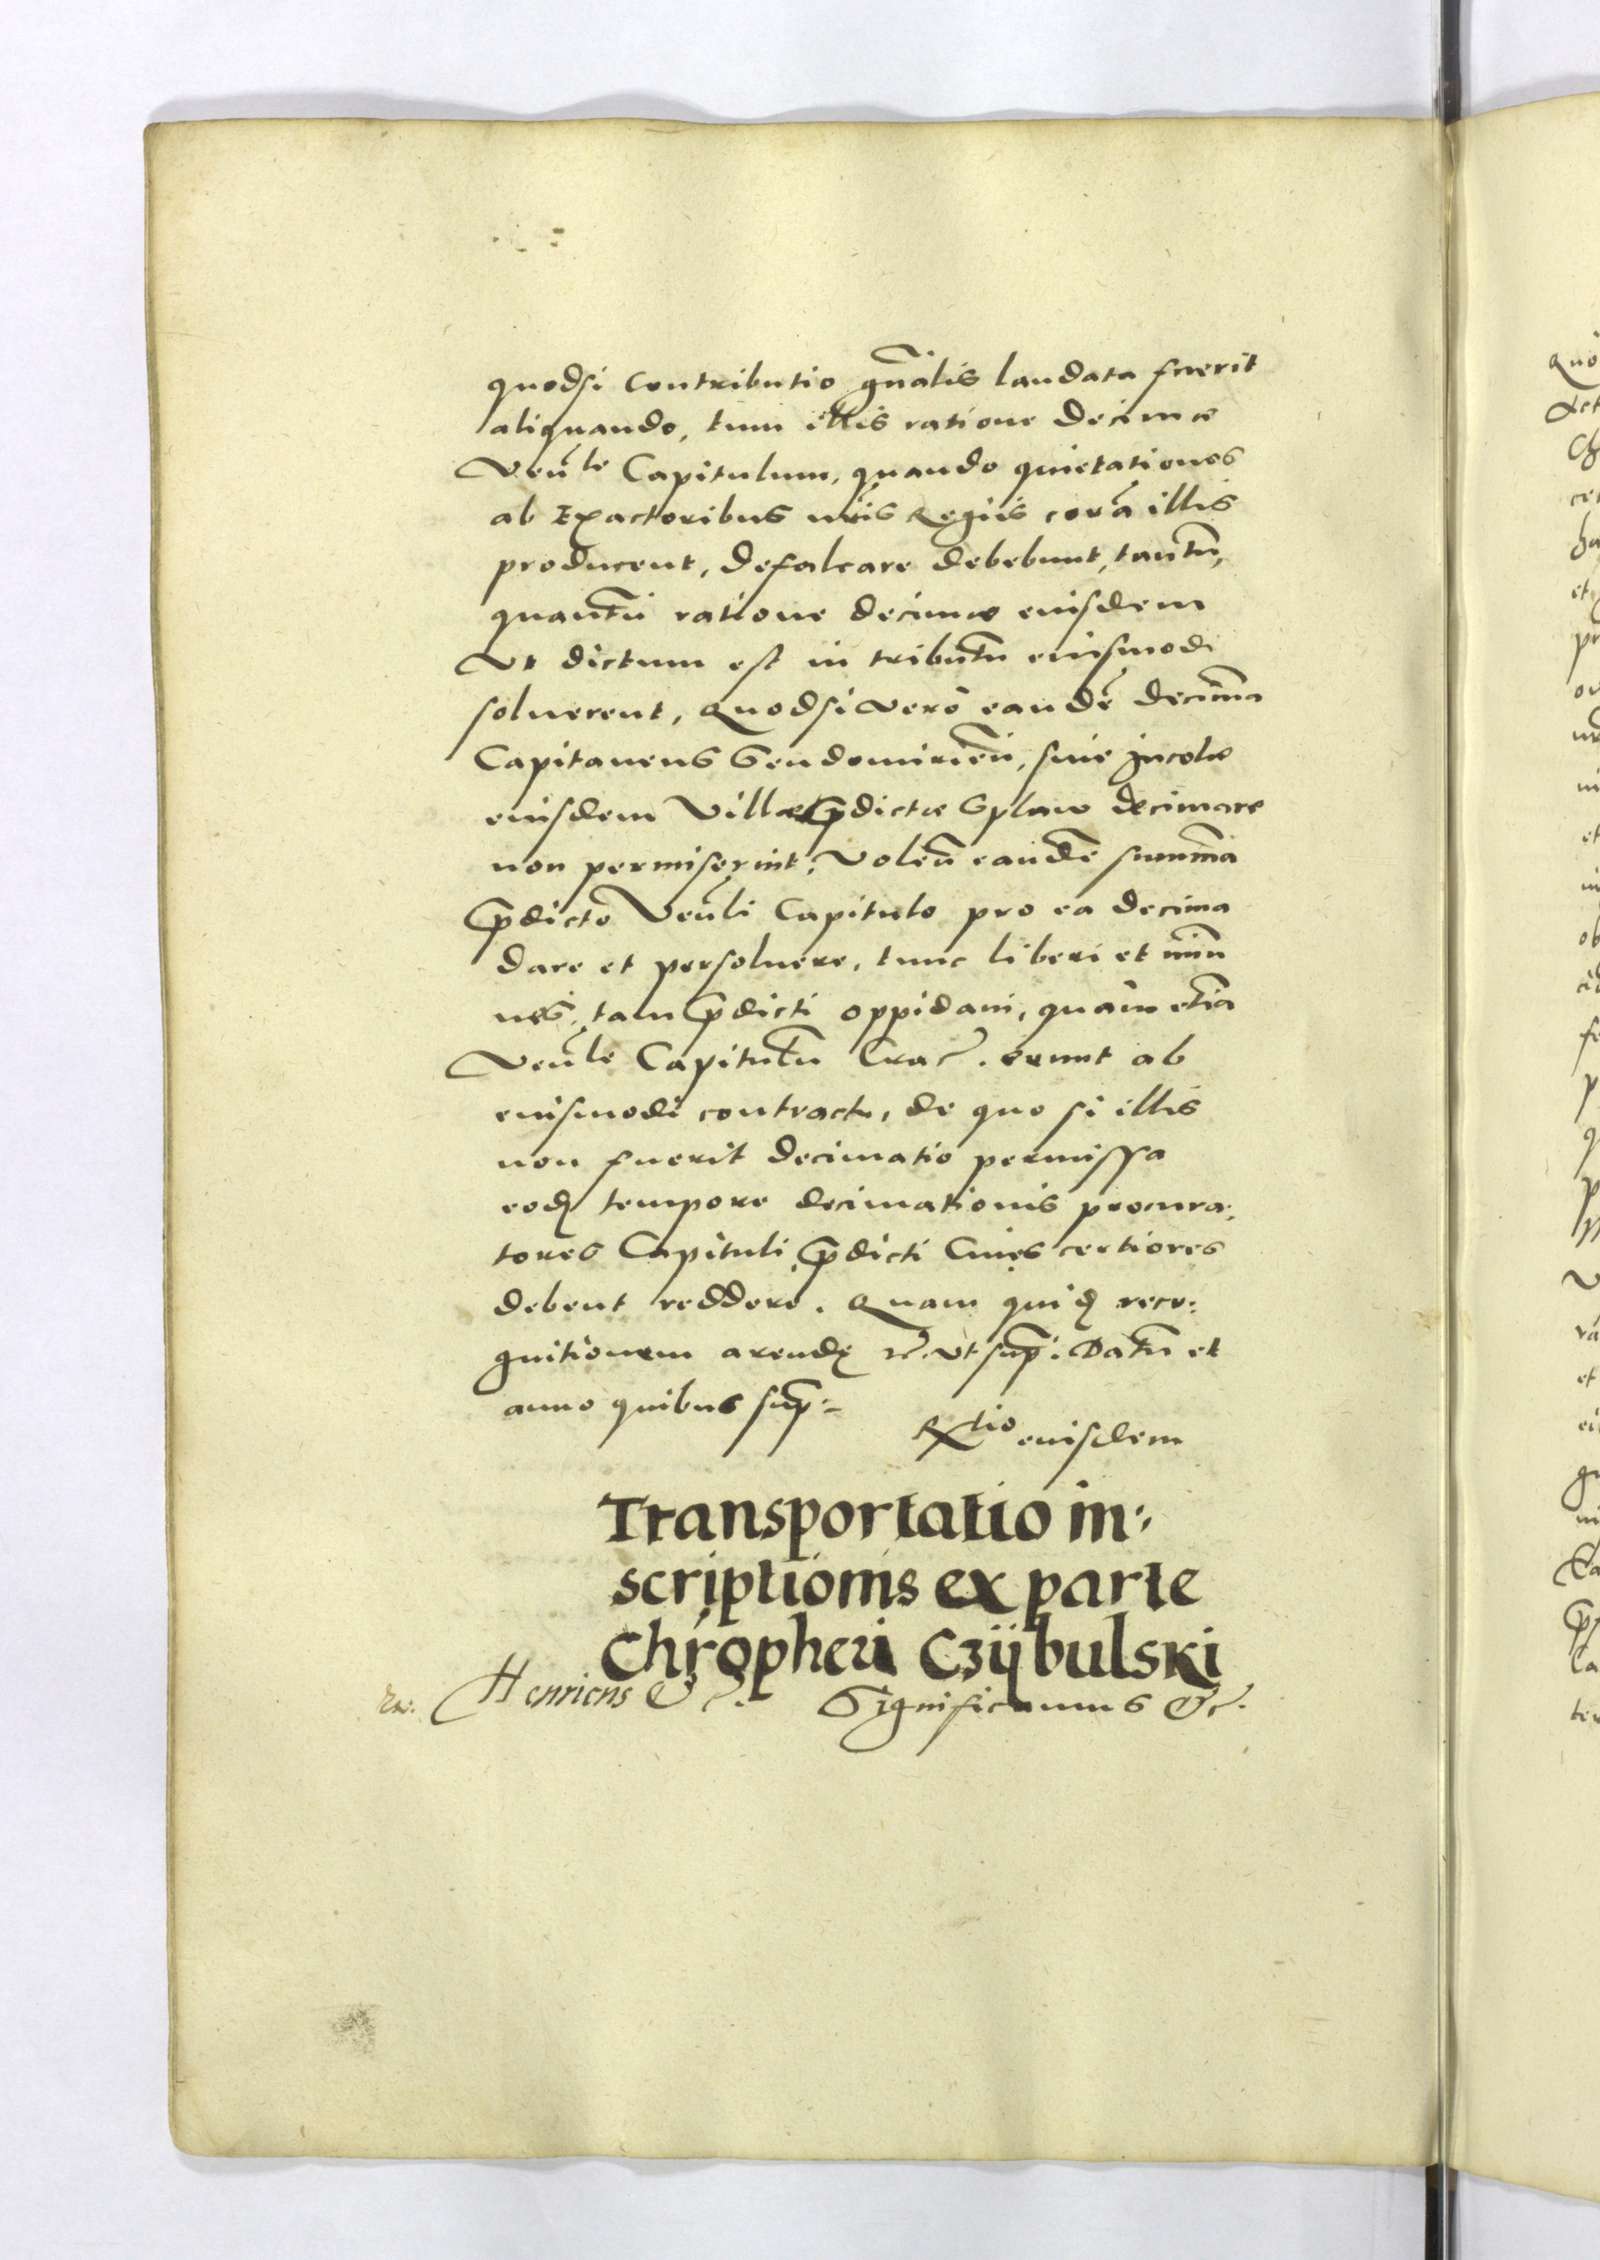 quodsi contributio gn̄alis laudata fuerit
aliquando, tum illis ratione decimæ
Ven͂le Capitulum, quando quietationes
ab Exactoribus nr̄is Regiis corã illis
producent, defalcare debebunt, tantũ,
quantũ ratione decimæ eiusdem
Vt dictum est in tributũ eiusmodi
soluerent, Quodsi vero eandẽ decimã
Capitaneus Sendomirieñ, siue Incolæ
eiusdem Villæ p̄dictæ decimare
non permiserint, Voleñ eandẽ summã
p̄dicto Ven͂li Capitulo pro ea decima
dare et persoluere, tunc liberi et im̄u
nes, tam p̄dicti oppidani, quam etiã
Ven͂le Capitulũ Crac. erunt ab
eiusmodi contractu, de quo si illis
non fuerit decimatio permissa
eod̨ tempore decimationis procura:
tores Capituli p̄dicti Ciues certiores
debent reddere. Quam quid̨ reco:
gnitionem arendę &c. vt sup̄. Datũ et
anno quibus sup̄:
Rtio eiusdem
Transportatio in:
scriptionis ex parte
Chrõpheri Czÿbulski
Henricus &c. Significamus &c.